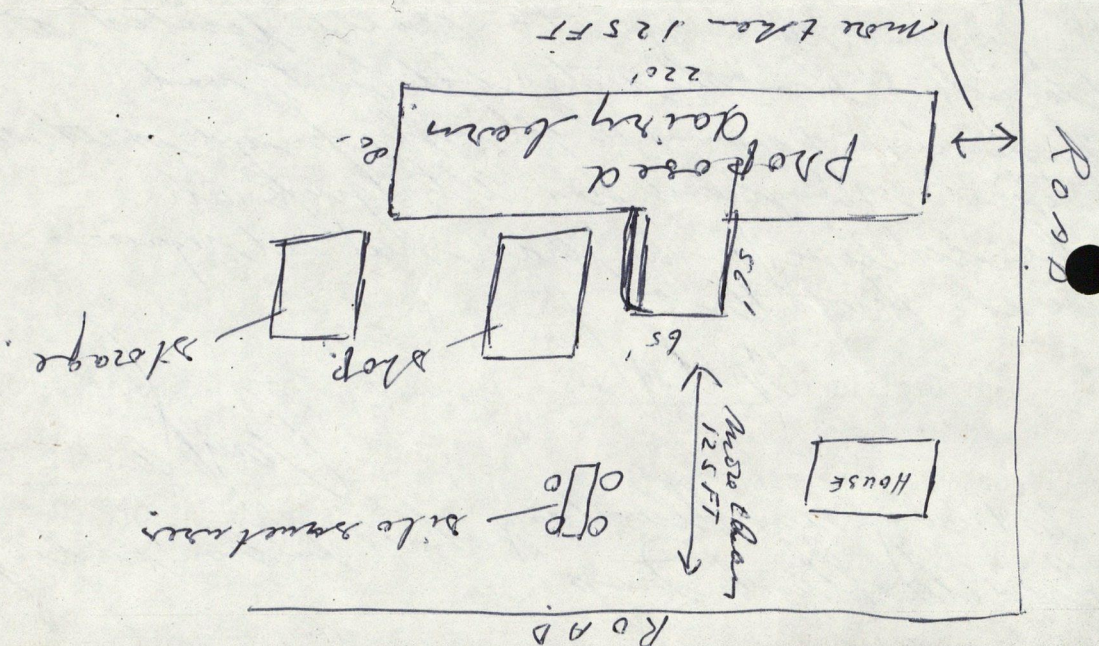 ROAD
HOUSE
more than
125 FT
silo
65'
shop
storage
ROAD
proposed
dairy barn
80'
220'
more than 125 FT